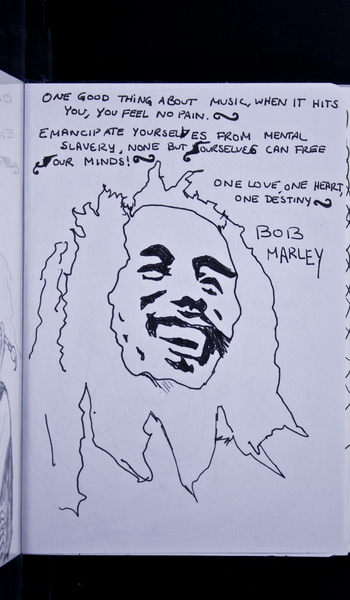 ONE GOOD THING ABOUT MUSIC, WHEN IT HITS
YOU, YOU FEEL NO PAIN.
EMANCIPATE YOURSELVES FROM MENTAL
SLAVERY, NONE BUT OURSELVES CAN FREE
OUR MINDS!
ONE LOVE, ONE HEART,
ONE DESTINY
BOB
MARLEY